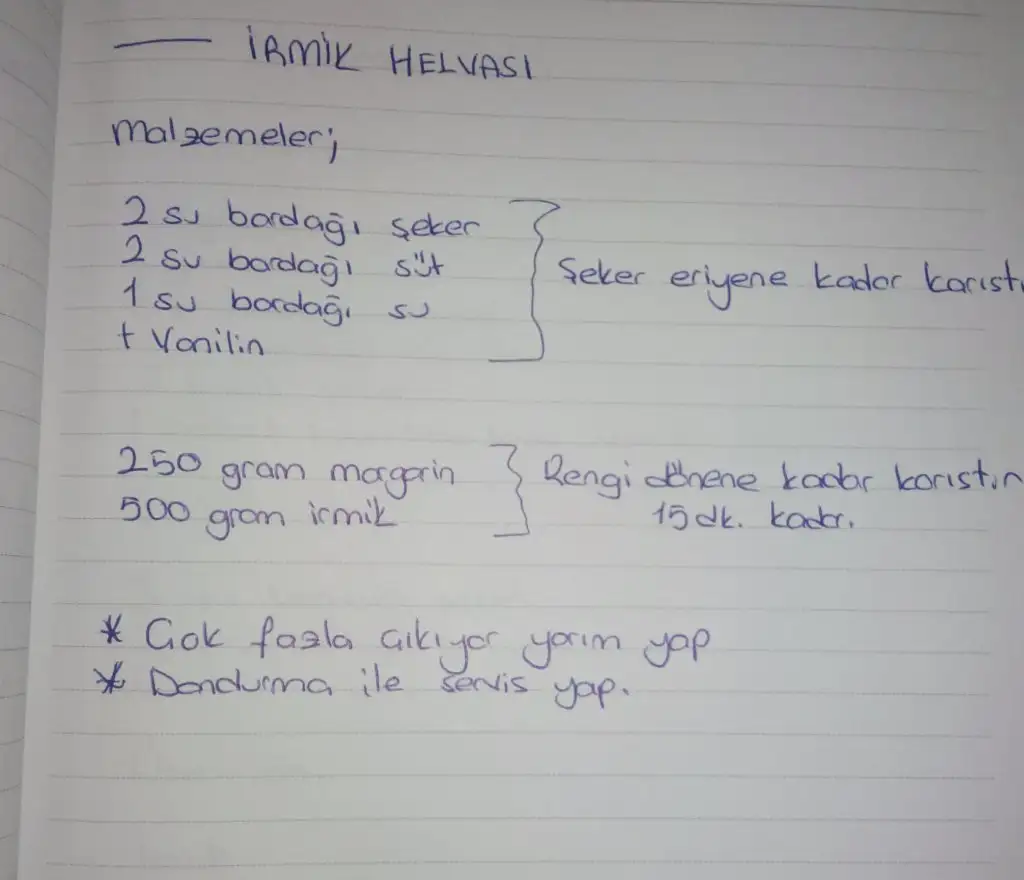 İRMİK HELVASI
malzemeler;
2 su bardağı şeker
2 su bardağı süt
1 su bardağı su
+ Vanilin
Şeker eriyene kadar karıştı
250 gram margarin
500 gram irmik
Rengi dönene kadar karıstın
15 dk. kadar.
* Çok fazla çıkıyor yarım yap
* Dondurma ile servis yap.